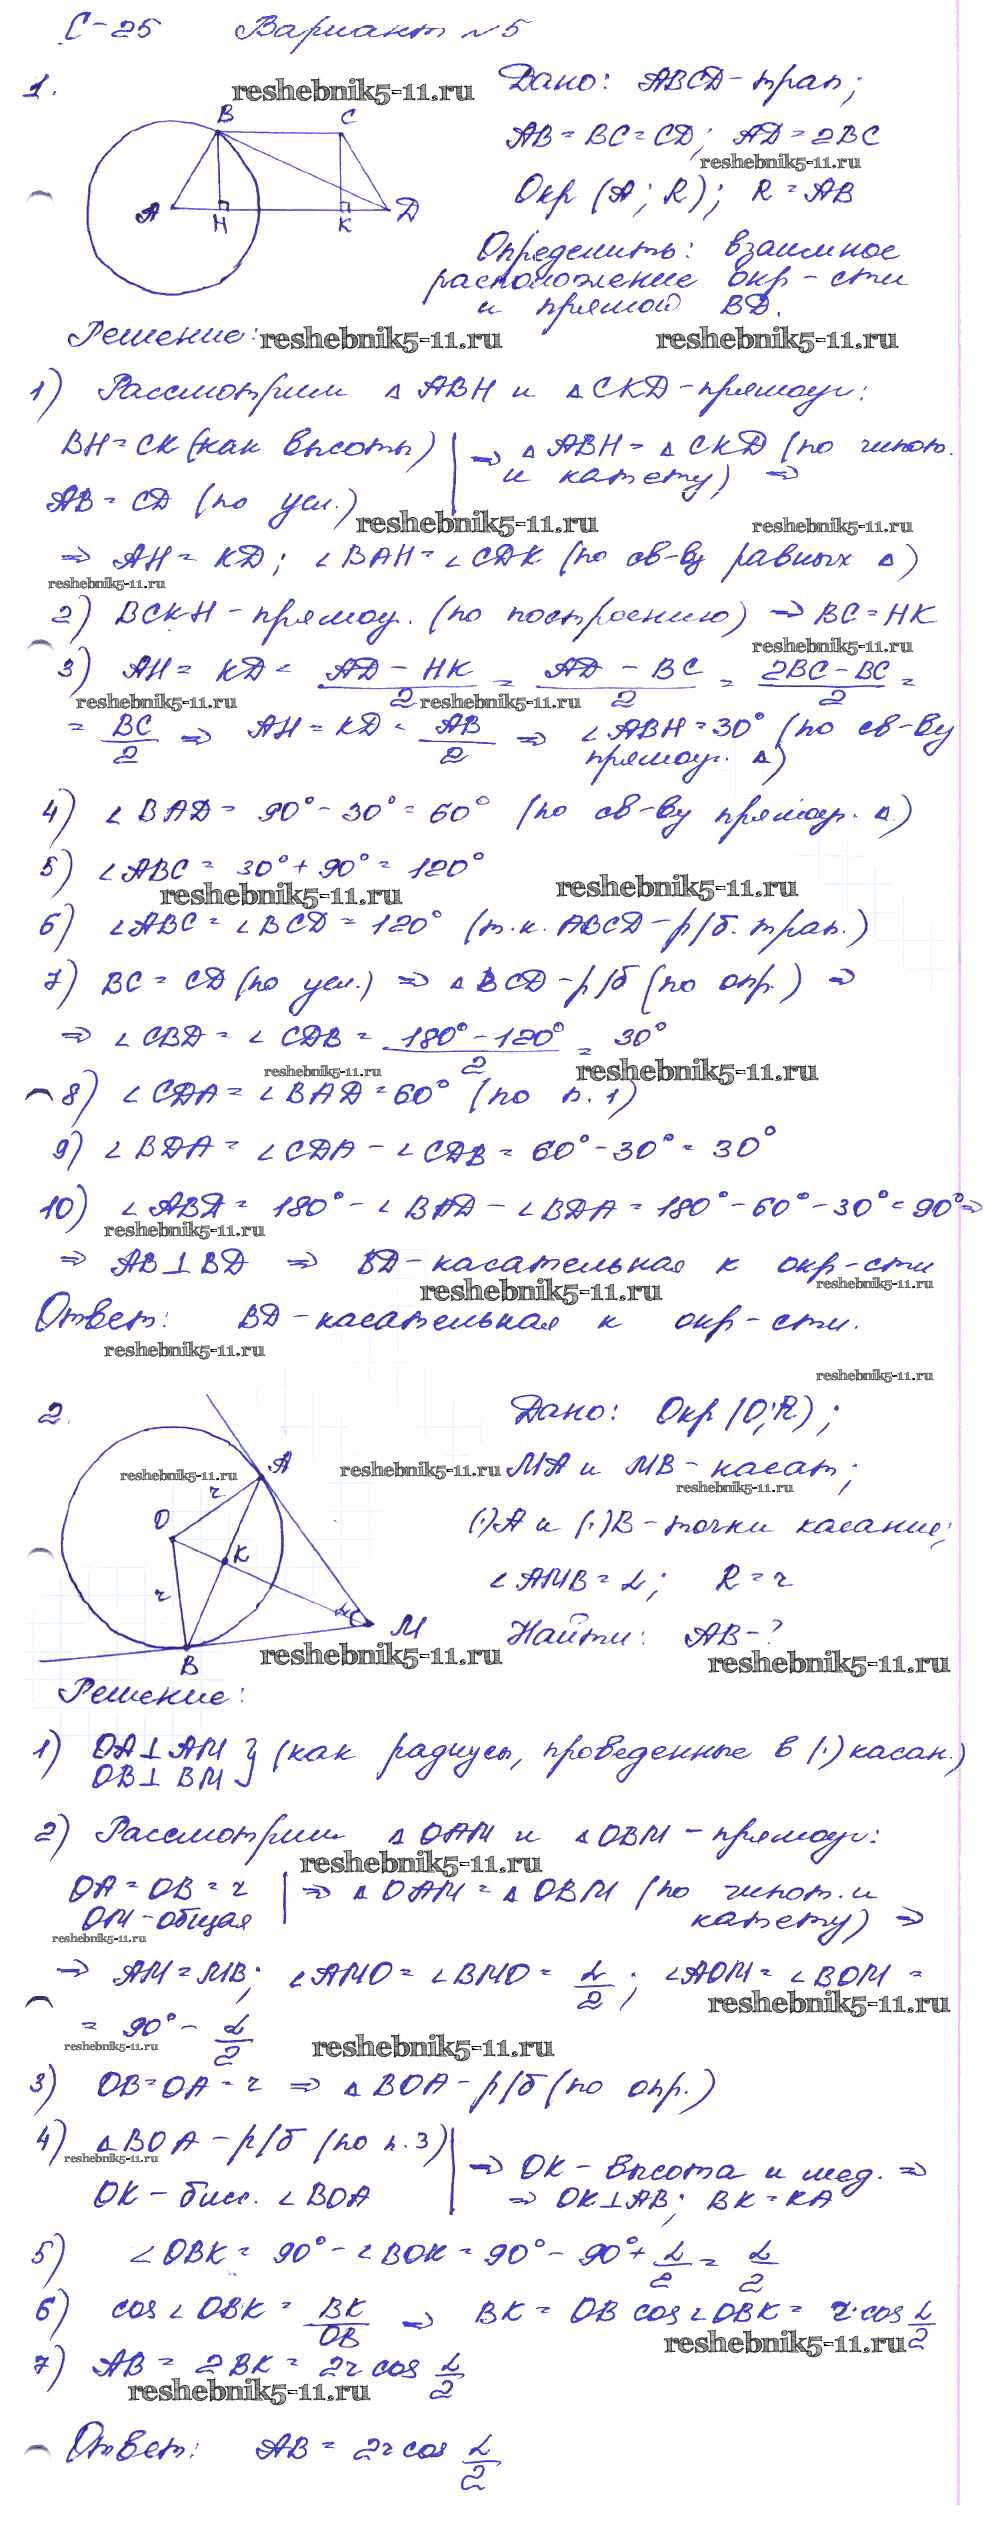 С-25 Вариант №5
1.
reshebnik5-11.ru
Дано: ABCD-трап;
B C
AB=BC=CD; AD=2BC
reshebnik5-11.ru
A H K D
Окр (A; R); R=AB
Определить: взаимное
расположение окр-сти
и прямой BD.
Решение: reshebnik5-11.ru reshebnik5-11.ru
1) Рассмотрим △ABH и △CKD-прямоуг:
BH=CK (как высоты) | ⇒ △ABH = △CKD (по гипот.
и катету) ⇒
AB=CD (по усл.)
reshebnik5-11.ru reshebnik5-11.ru
⇒ AH=KD; ∠BAH=∠CDK (по св-ву равных △)
reshebnik5-11.ru
2) BCKH-прямоу. (по построению) ⇒ BC=HK
reshebnik5-11.ru
3) AH=KD= (AD-HK)/2 = (AD-BC)/2 = (2BC-BC)/2 =
reshebnik5-11.ru reshebnik5-11.ru
= BC/2 ⇒ AH=KD= AB/2 ⇒ ∠ABH=30° (по св-ву
прямоуг. △)
4) ∠BAD=90°-30°=60° (по св-ву прямоуг. △.)
5) ∠ABC= 30°+90°=120°
reshebnik5-11.ru reshebnik5-11.ru
6) ∠ABC=∠BCD=120° (т.к. ABCD-р/б. трап.)
7) BC=CD (по усл.) ⇒ △BCD-р/б (по опр.) ⇒
⇒ ∠CBD=∠CDB= (180°-120°)/2 = 30°
reshebnik5-11.ru reshebnik5-11.ru
8) ∠CDA=∠BAD=60° (по п.1)
9) ∠BDA=∠CDA-∠CDB=60°-30°=30°
10) ∠ABD=180°-∠BAD-∠BDA=180°-60°-30°=90° ⇒
reshebnik5-11.ru
⇒ AB⊥BD ⇒ BD-касательная к окр-сти
reshebnik5-11.ru reshebnik5-11.ru
Ответ: BD-касательная к окр-сти.
reshebnik5-11.ru
reshebnik5-11.ru
2.
Дано: Окр (O;R);
A
reshebnik5-11.ru reshebnik5-11.ru MA и MB-касат;
reshebnik5-11.ru
r
O
(·)A и (·)B-точки касание;
K
r
α
∠AMB=α; R=r
M
Найти: AB-?
B
reshebnik5-11.ru reshebnik5-11.ru
Решение:
1) OA⊥AM
OB⊥BM } (как радиусы, проведенные в (·) касан.)
2) Рассмотрим △OAM и △OBM-прямоуг:
reshebnik5-11.ru
OA=OB=r | ⇒ △OAM=△OBM (по гипот. и
OM-общая катету) ⇒
reshebnik5-11.ru
⇒ AM=MB; ∠AMO=∠BMO= α/2; ∠AOM=∠BOM=
reshebnik5-11.ru
= 90°- α/2
reshebnik5-11.ru reshebnik5-11.ru
3) OB=OA=r ⇒ △BOA-р/б (по опр.)
4) △BOA-р/б (по п.3) | ⇒ OK-высота и мед. ⇒
reshebnik5-11.ru
OK-бисс. ∠BOA ⇒ OK⊥AB; BK=KA
5) ∠OBK=90°-∠BOK=90°-90°+ α/2 = α/2
6) cos∠OBK= BK/OB ⇒ BK=OB cos∠OBK= r·cos α/2
reshebnik5-11.ru
7) AB=2BK=2r cos α/2
reshebnik5-11.ru
Ответ: AB=2r cos α/2